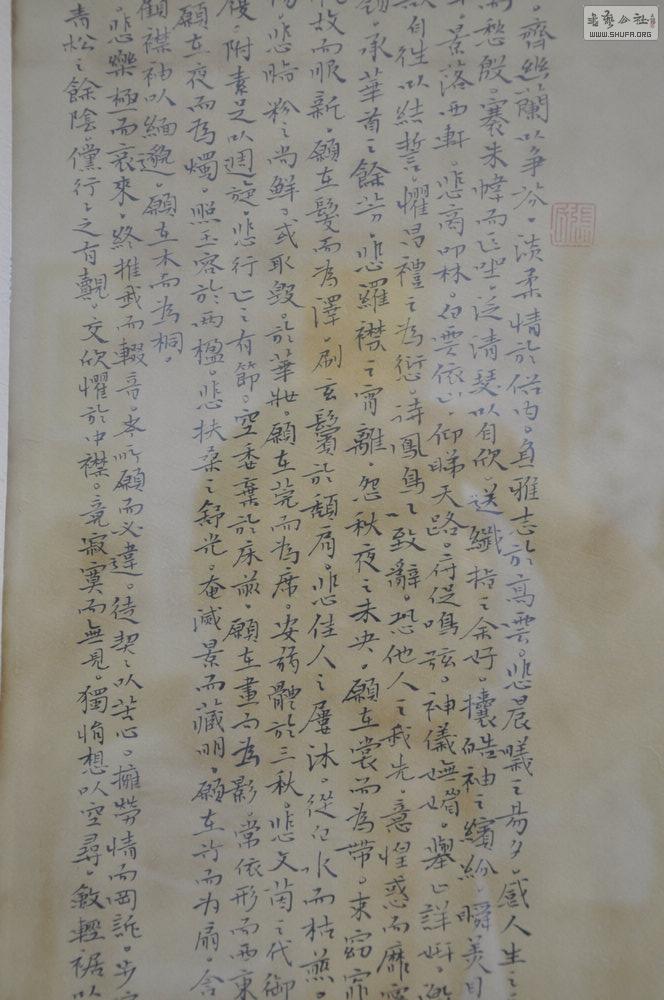 。齊幽蘭以爭芬。淡柔情於俗内。負雅志於高雲。悲晨曦之易夕。感人生之
而愁殷。褰朱幃而正坐。泛清瑟以自欣。送纖指之余好。攘皓袖之繽紛。瞬美目
景落西軒。悲商叩林。白雲依山。仰睇天路。俯促鳴弦。神儀嫵媚。舉止詳妍。
欲自往以結誓。懼冒禮之為愆。待鳳鳥以致辭。恐他人之我先。意惶惑而靡寧
領。承華首之餘芳。悲羅襟之宵離。怨秋夜之未央。願在裳而為帶。束窈窕
脫故而服新。願在髮而為澤。刷玄鬢於頹肩。悲佳人之屢沐。從白水而枯煎。
悲脂粉之尚鮮。或取毀於華妝。願在莞而為席。安弱體於三秋。悲文茵之代御
履。附素足以週旋。悲行止之有節。空委棄於床前。願在晝而為影。常依形而西東
願在夜而為燭。照玉容於兩楹。悲扶桑之舒光。奄滅景而藏明。願在竹而為扇。含
顧襟袖以緬邈。願在木而為桐。
悲樂極而哀來。終推我而輟音。考所願而必違。徒契々以苦心。擁勞情而罔訴。步
青松之餘陰。儻行々之有覿。交欣懼於中襟。竟寂寞而無見。獨悁想以空尋。斂輕裾以
書藝公社
WWW.SHUFA.ORG